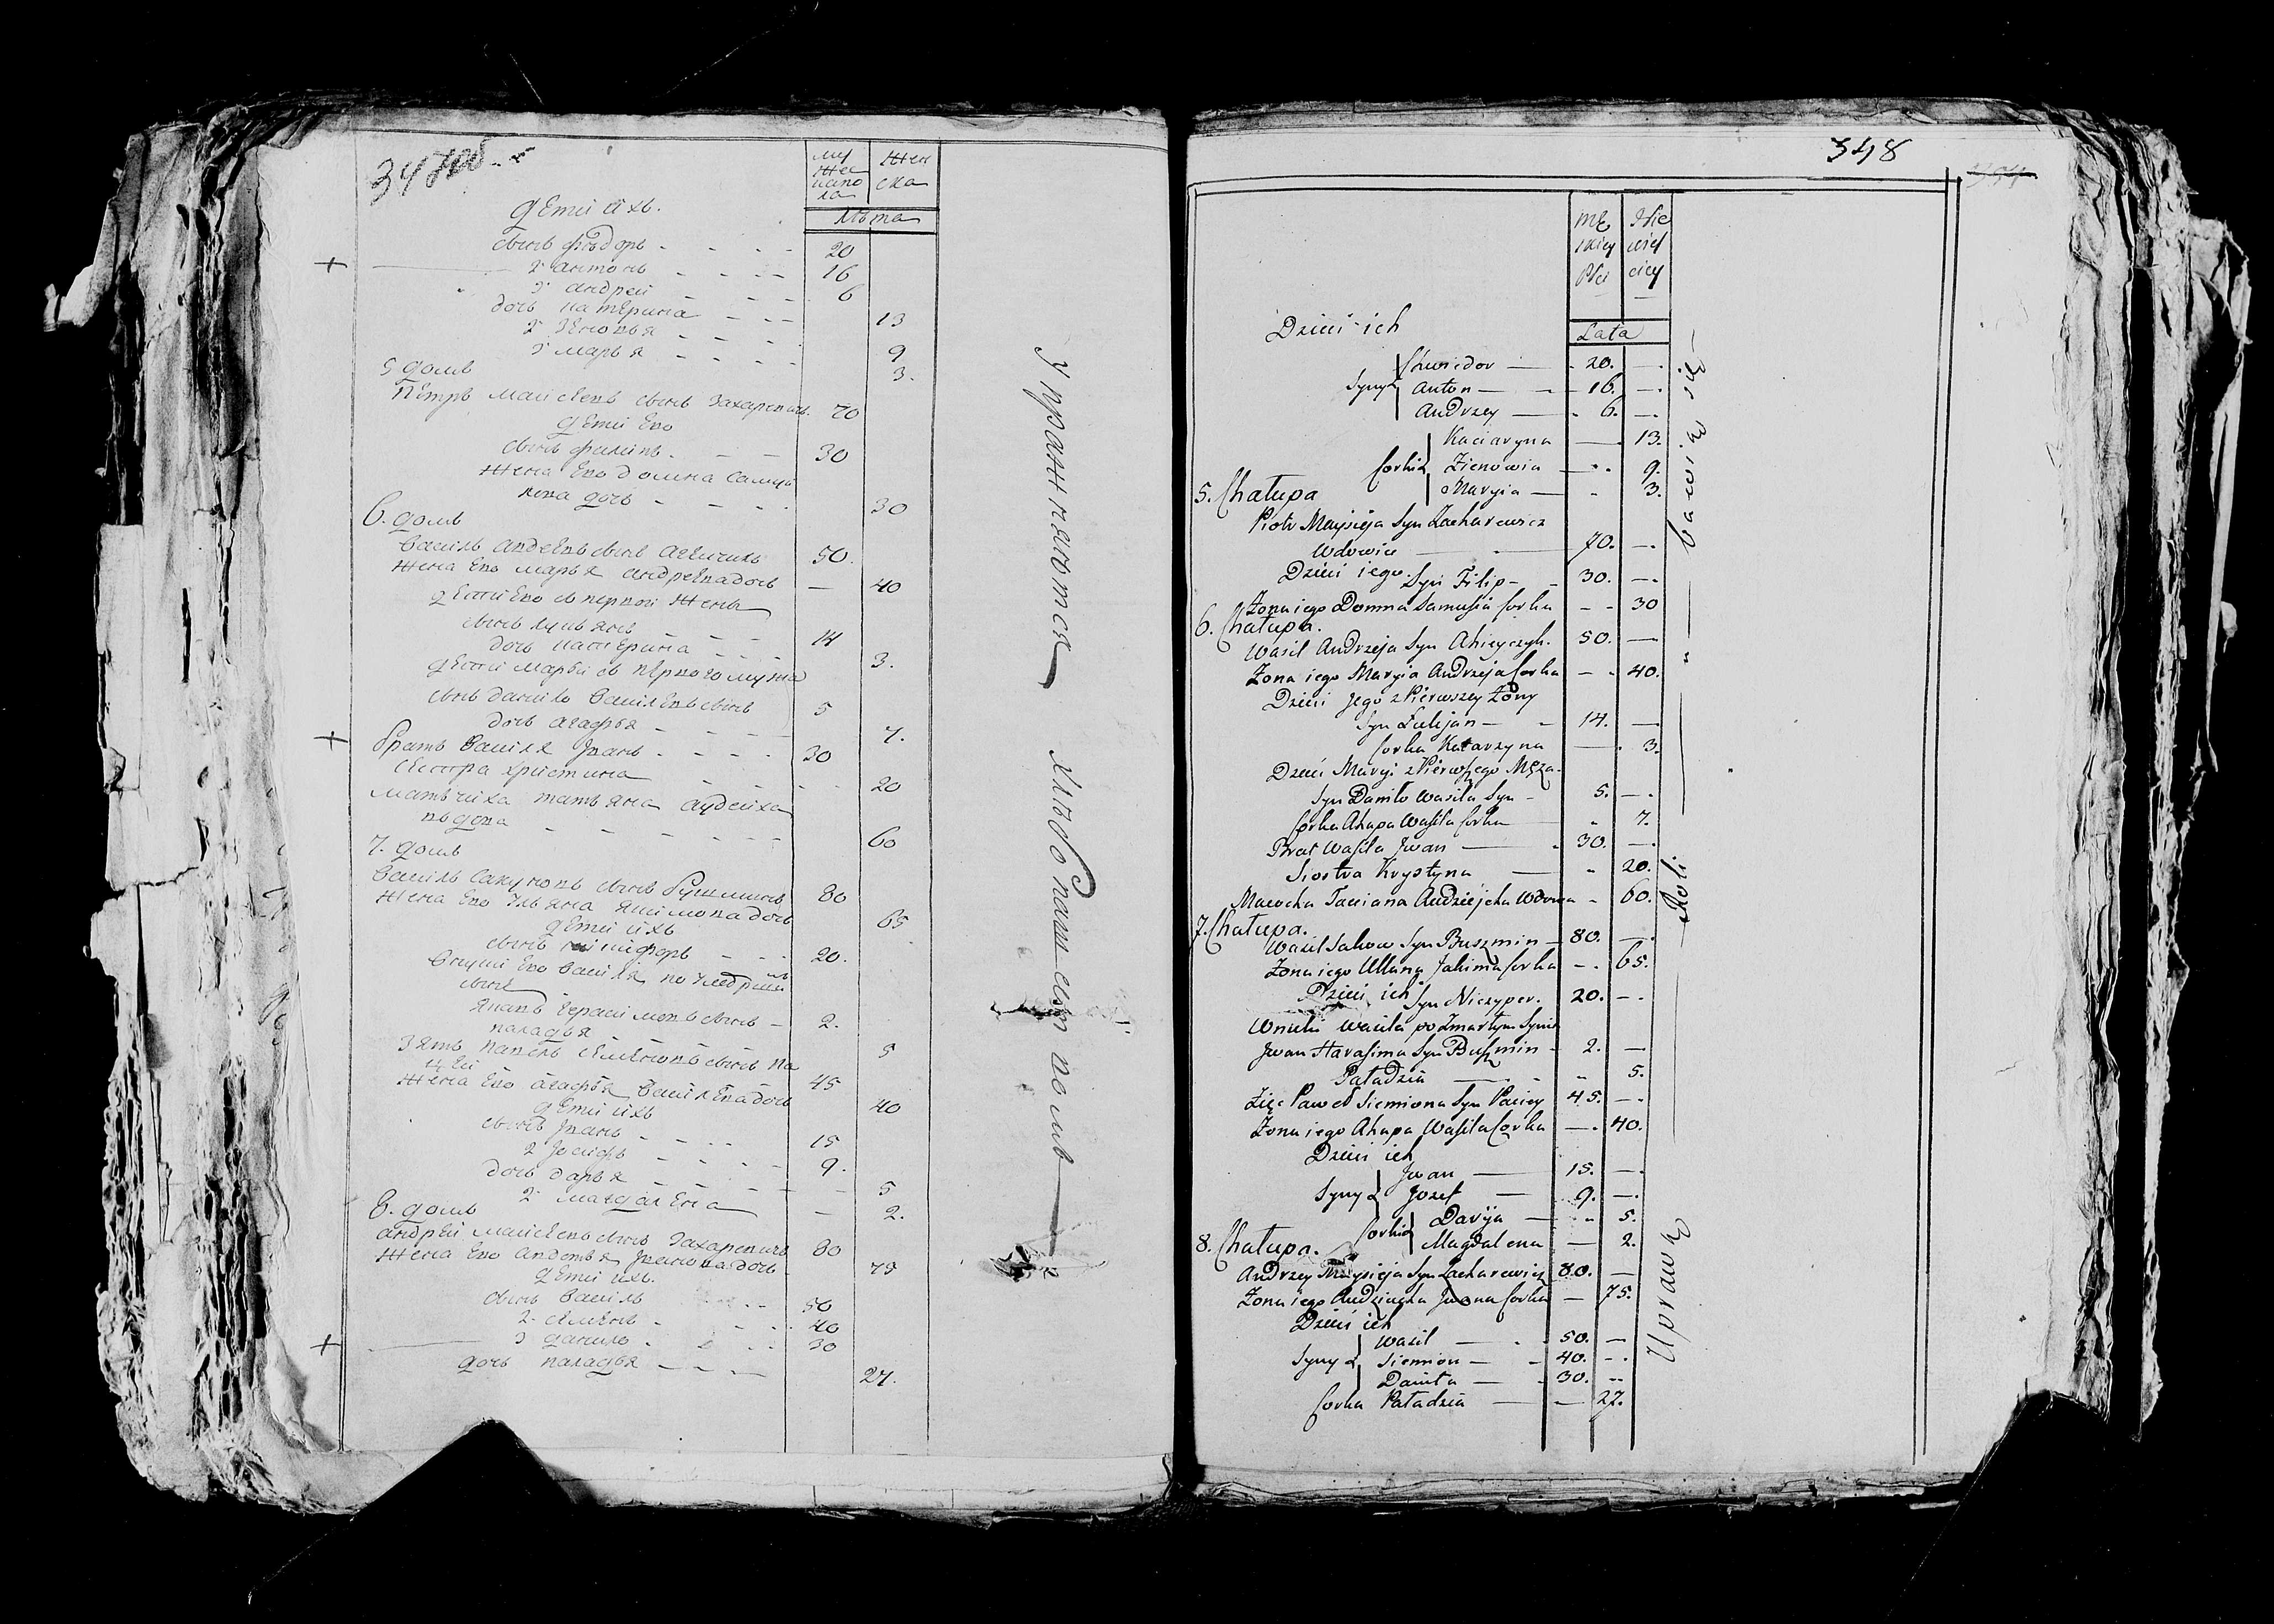 347об.
муж
жес
каго
ла
жен
ска
Лѣта
дети ихъ.
сынъ фѣдоръ 20
2 антонъ 16
3 андреи 6
дочь катерина 13
2 зеновья 9
3 марья 3.
5 домъ
Петръ маисеевъ сынъ Захаревичъ. 70
дети Ево
сынъ филипъ. 30
жена Ево домна самуй
лова дочь 30
6. домъ
василь андеевъ сынъ 50.
жена Ево марья андреевна дочь 40
дети Ево съ первой жены
сынъ лукьянъ 14
дочь катерина 3.
дети марьи съ перваго мужа
сынъ данило василевъ сынъ 5
дочь агафья 7.
братъ василя Іванъ 30
сестра христина 20
матчиха татьяна аудеиха
вдова 60
7. домъ
василь сакуновъ сынъ бушминъ 80
жена Ево Ульяна якимова дочь 65
дети ихъ
сынъ никифоръ 20.
внуки Ево василя по умершем
сыне
Іванъ герасимовъ сынъ 2.
паладья 5
зять павелъ семеновъ сынъ па
цеи 45
жена Ево агафья василева дочь 40
дети ихъ
сынъ Іванъ 15
2 Іосифъ 9.
дочь дарья 5
2. магдалена 2.
8. домъ
андреи маисеевъ сынъ Захаревичъ 80
жена Ево авдотья Іванова дочь 75
дети ихъ.
сынъ василь 50
2. семенъ 40
3 данило 30
дочь паладья 27.
Упражняются хлѣбопашествомъ
348
Mę
skiey
Płci
Nie
wies
ciey
Lata
Dzieci ich
Syny Chwiedor 20.
Anton 16.
Andrzey 6.
Corki Kaciaryna 13.
Zienowia 9.
Maryia 3.
5. Chałupa
Piotr Maysieja Syn Zacharewicz
Wdowiec 70.
Dzieci iego Syn Filip 30.
Żona iego Domna Samusia Corka 30
6. Chałupa.
Wasil Andrzeja Syn Ahieyczyk. 50.
Żona iego Maryia Andrzeja Corka 40.
Dzieci Jego z Pierwszey Żony
Syn Łukjan 14.
Corka Katarzyna 3.
Dzieci Maryi z Pierwszego Męża
Syn Daniło Wasila Syn 5.
Corka Ahapa Wasila Corka 7.
Brat Wasila Jwan 30.
Siostra Krystyna 20.
Macocha Taciana Audziejcha Wdowa 60.
7. Chałupa.
Wasil Sakow Syn Buszmin 80.
Żona iego Ullana Jakima Corka 65.
Dzieci ich Syn Niczyper. 20.
Wnuki Wasila po Zmarłym Synie
Jwan Harasima Syn Buszmin 2.
Paładzia 5.
Zięć Paweł Siemiona Syn Paciey 45.
Żona iego Ahapa Wasila Corka 40.
Dzieci ich
Syny Jwan 15.
Jozef 9.
Corki Daryja 5.
Magdalena 2.
8. Chałupa.
Andrzey Maysieja Syn Zacharewicz 80.
Żona iego Audziucha Jwana Corka 75.
Dzieci ich
Syny Wasil 50.
Siemion 40.
Daniła 30.
Corka Paładzia 27.
Uprawą Roli bawią się